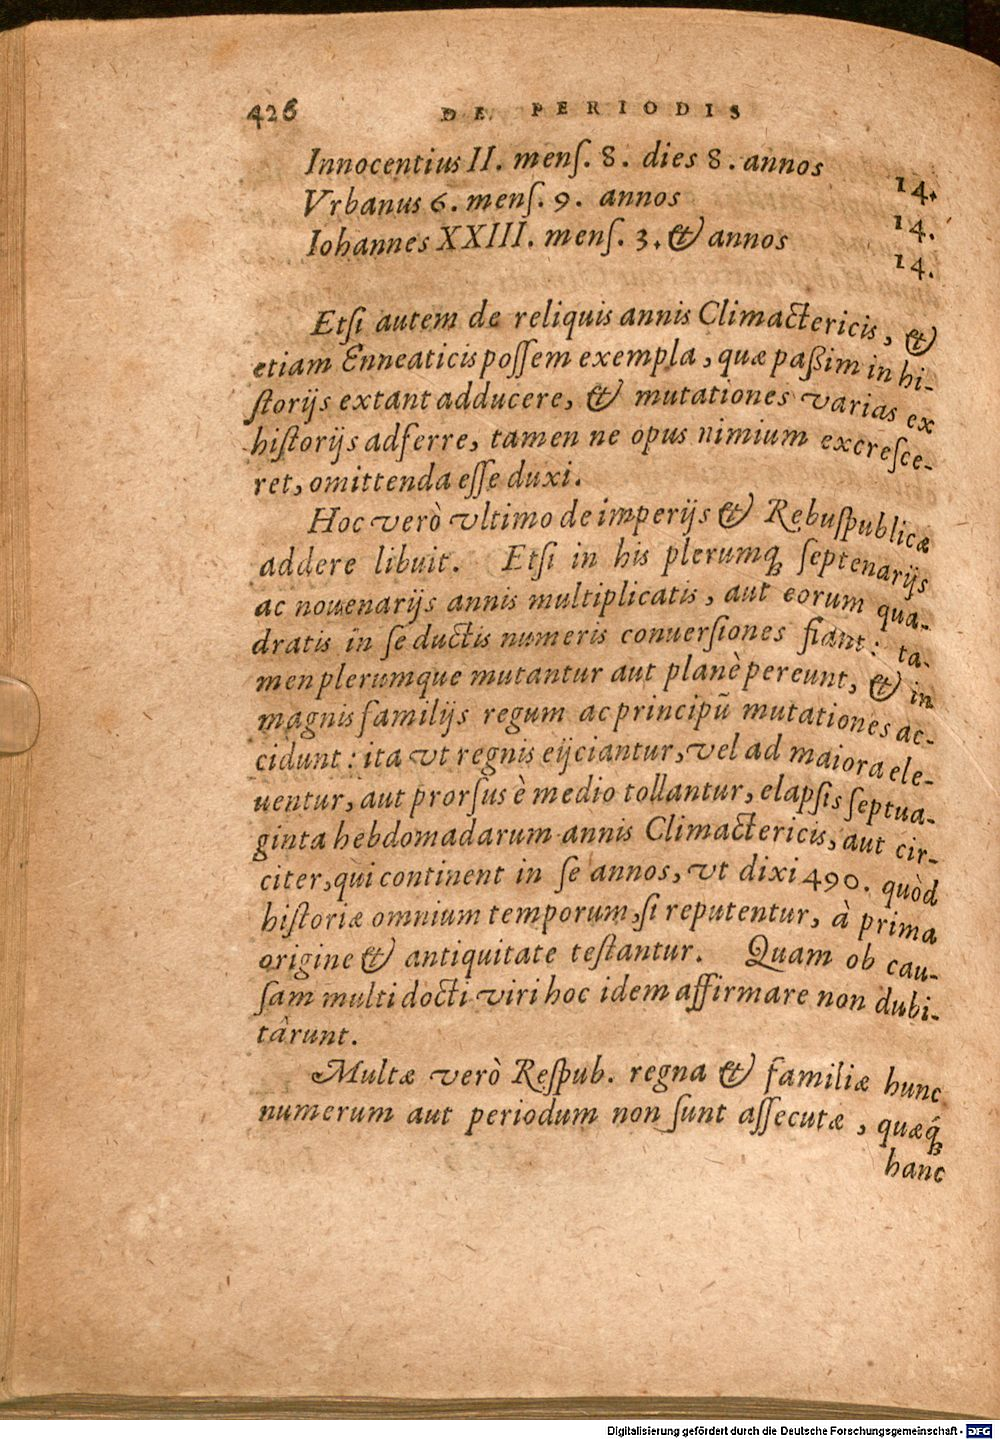 426 DE PERIODIS
Innocentius II. mens. 8. dies 8. annos 14.
Vrbanus 6. mens. 9. annos 14.
Iohannes XXIII. mens. 3. & annos 14.
Etsi autem de reliquis annis Climactericis, &
etiam Enneaticis possem exempla, quæ paßim in hi-
storijs extant adducere, & mutationes varias ex
historijs adferre, tamen ne opus nimium excresce-
ret, omittenda esse duxi.
Hoc verò vltimo de imperijs & Rebuspublicæ
addere libuit. Etsi in his plerumq; septenarijs
ac nouenarijs annis multiplicatis, aut eorum qua-
dratis in se ductis numeris conuersiones fiant: ta-
men plerumque mutantur aut planè pereunt, & in
magnis familijs regum ac principũ mutationes ac-
cidunt: ita vt regnis eijciantur, vel ad maiora ele-
uentur, aut prorsus è medio tollantur, elapsis septua-
ginta hebdomadarum annis Climactericis, aut cir-
citer, qui continent in se annos, vt dixi 490. quòd
historiæ omnium temporum, si reputentur, à prima
origine & antiquitate testantur. Quam ob cau-
sam multi docti viri hoc idem affirmare non dubi-
târunt.
Multæ verò Respub. regna & familiæ hunc
numerum aut periodum non sunt assecutæ, quæq́;
hanc
Digitalisierung gefördert durch die Deutsche Forschungsgemeinschaft - DFG